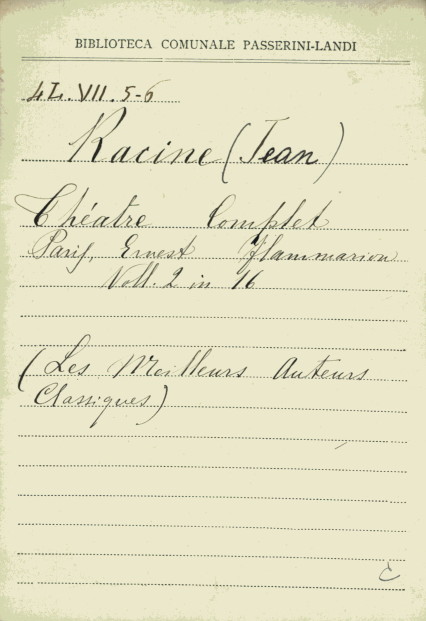 BIBLIOTECA COMUNALE PASSERINI-LANDI
4L.VII.5-6
Racine (Jean)
Théatre Complet
Paris, Ernest Flammarion
Voll. 2 in 16
(Les Meilleurs Auteurs
Classiques)
C